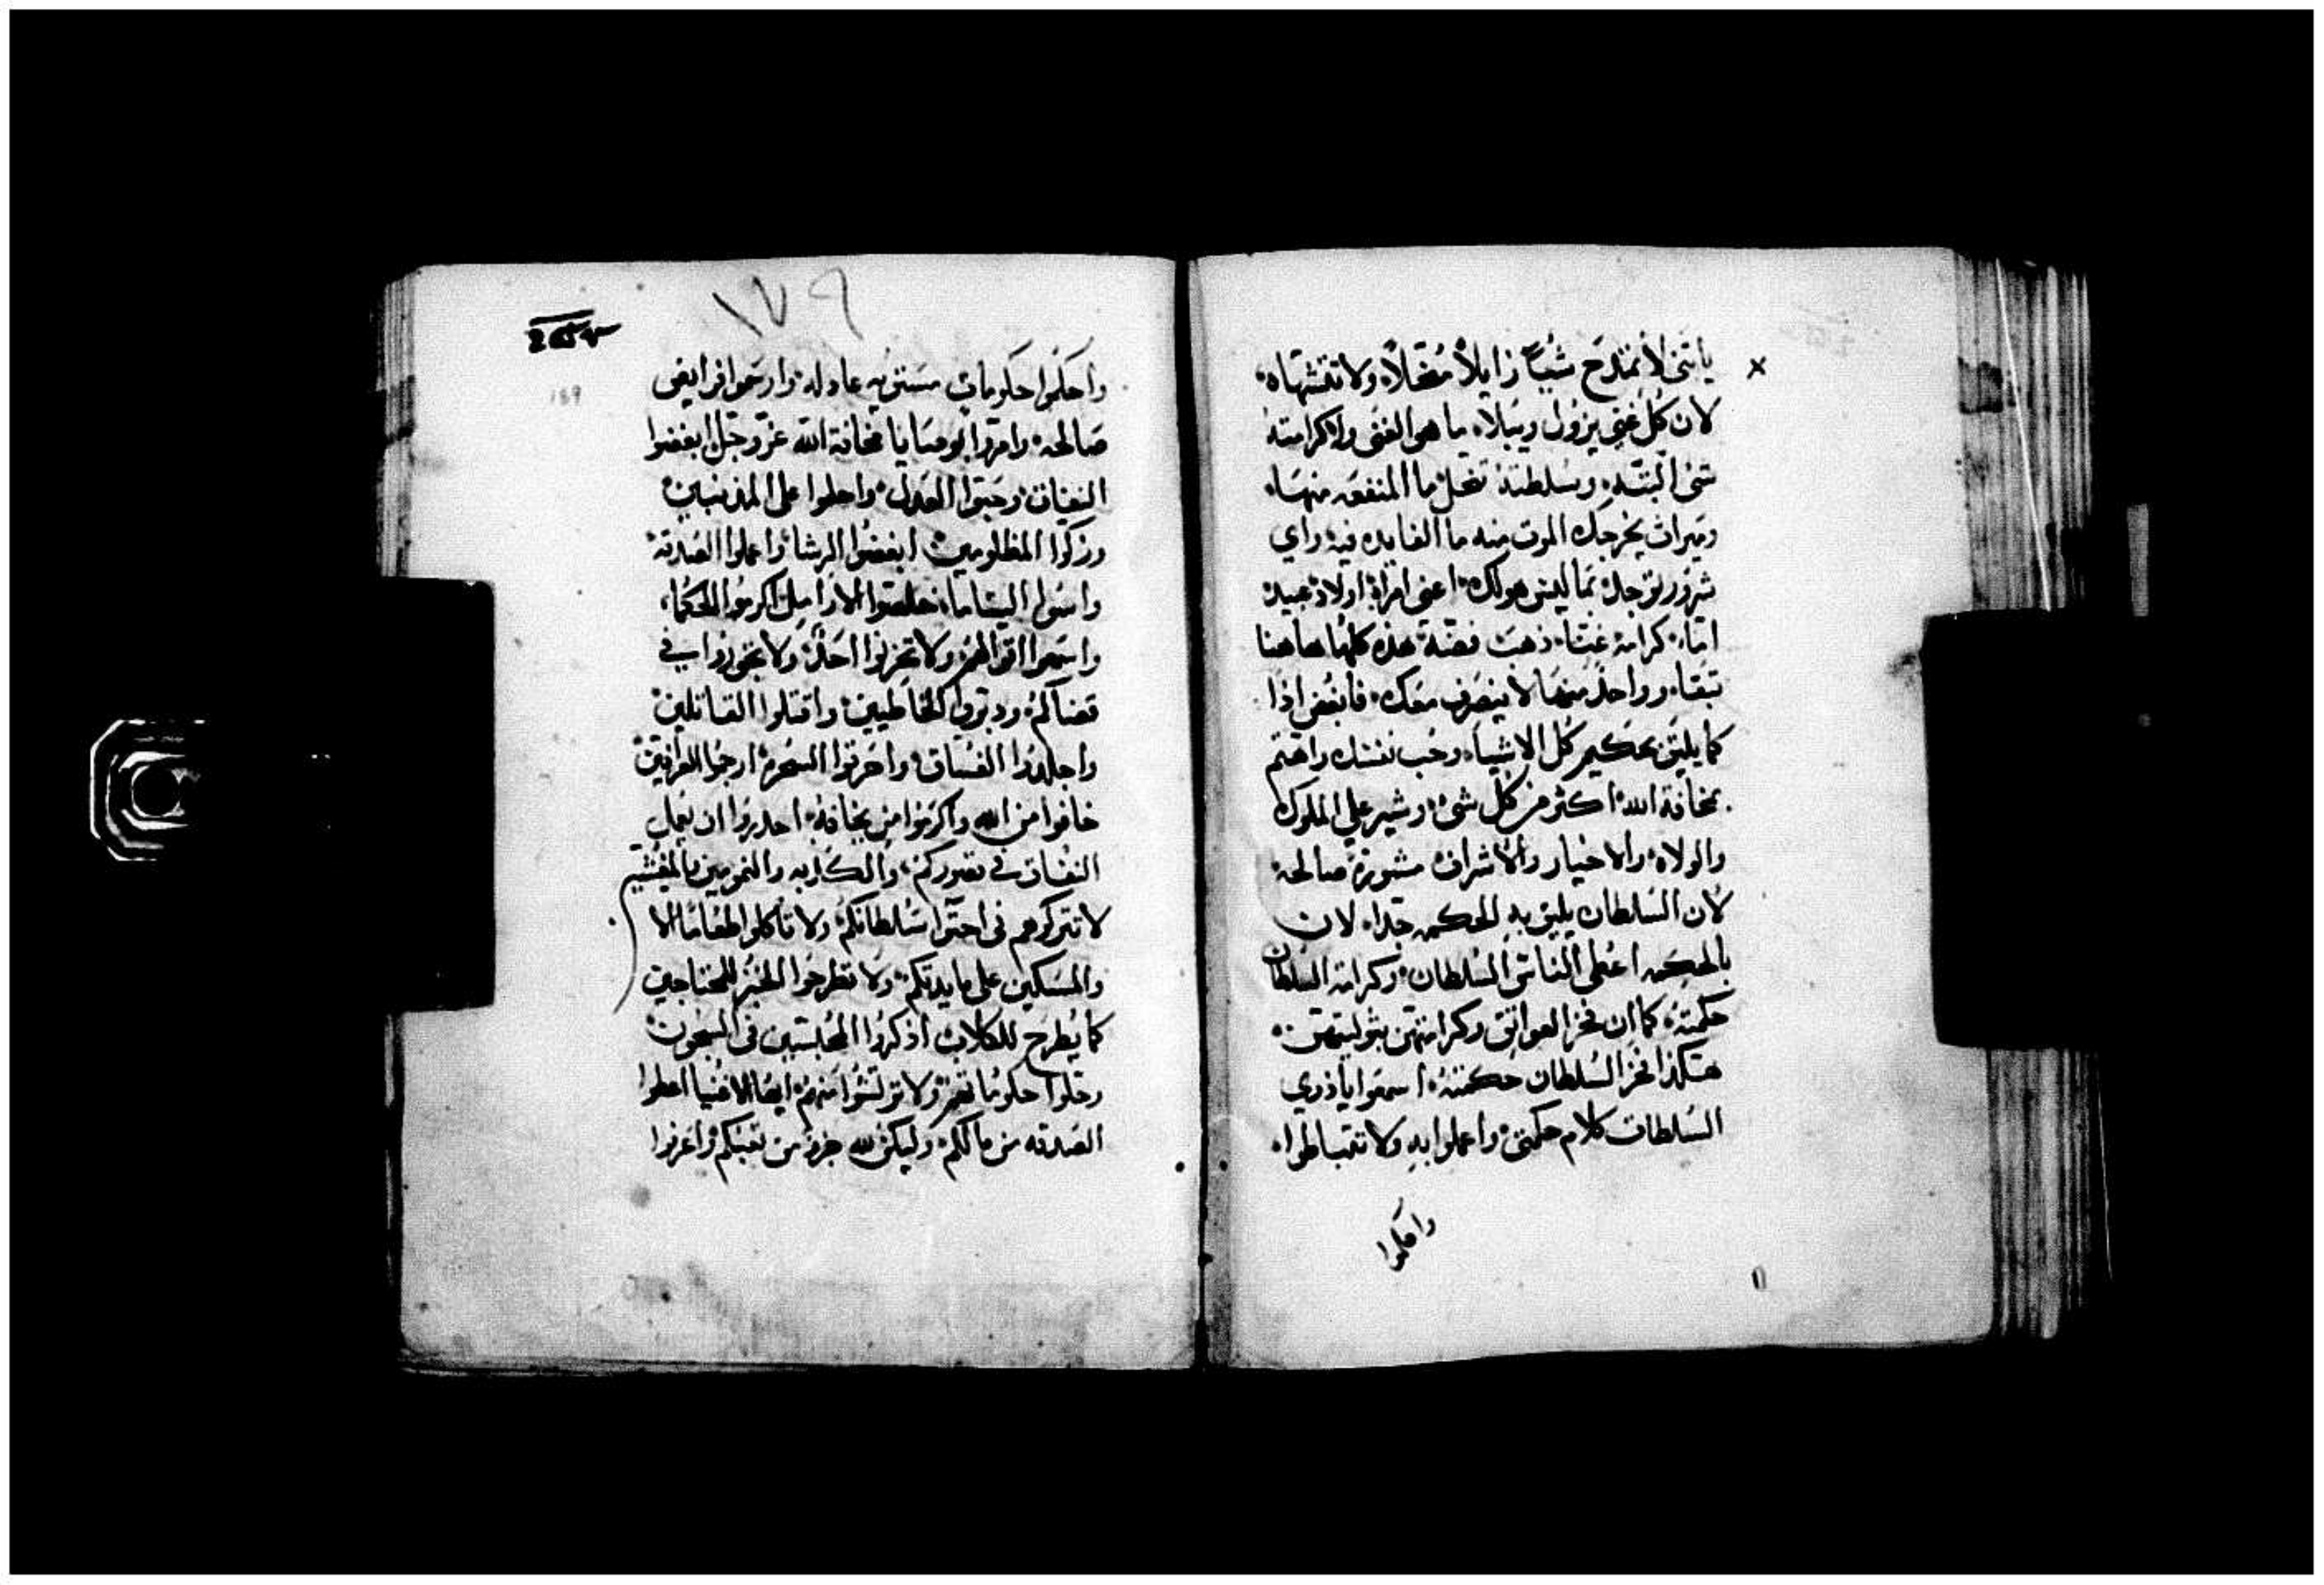 يا بني لا تمتدح شيئًا زايلاً مضمحلاً ولا تفتشهاه
لان كل غني يزول ويبلاه ما هو الغني والكرامته
شي البتّه وسلطنة تضحل ما المنفعه منهاه
وميراث يخرجك الموت منه ما الفايده فيه واي
شرور توجد بما ليس هو لك اعني امراة اولاد عبيد
اماء كرامة غناء ذهب فضة هذه كلها هاهنا
تبقاه وواحد منها لا ينصرف معك فابغض اذا
كما يليق بحكيم كل الاشياء وحب نفسك واهتم
بمخافة الله اكثر من كل شي وشير علي الملوك
والولاه والاخيار والاشراف مشورة صالحة
لان السلطان يليق به الحكمه جداه لان
بالحكمه اعطي الناس السلطان وكرامة السلطان
حكمته كما ان فخر العواتق وكرامتهن بتوليتهن
هكذا فخر السلطان حكمته اسمعوا ياذوي
السلطان كلام حكمتي واعملوا به ولا تتباطواه
واحكموا
١٧٩
169
واحكموا حكومات مستويه عادله وارسموا فرايض
صالحه وامروا بوصايا مخافة الله عز وجل ابغضوا
النفاق وحبوا العدل واحلموا علي المذنبين
وزكوا المظلومين ابغضوا الرشا واعملوا الصدقة
وانسوا اليتاما خلصوا الارامل اكرموا الحكما
واسمعوا اقوالهم ولا تحزنوا احدًا ولا تجوروا في
قضاكم ودبروا الخاطيين واقتلوا القاتلين
واجلدوا الفساق واحرقوا السحرة ارجموا العرافين
خافوا من الله واكرموا من يخافه احدروا ان يقاب
النفاق في قصوركم والكدبه والنمومين بالمفتشيم
لا تتركوهم في احتوا سلطانكم ولا تاكلوا طعامًا الا
والمسكين علي مايدتكم ولا تطرحوا الخبز للمحتاجين
كما يطرح للكلاب اذكروا المحبسين في السجون
وحلوا حكوماتهم ولا ترتشوا منهم ايها الاغنيا اعطوا
الصدقه من مالكم وليكن لله جزو من تعبكم واعرفوا